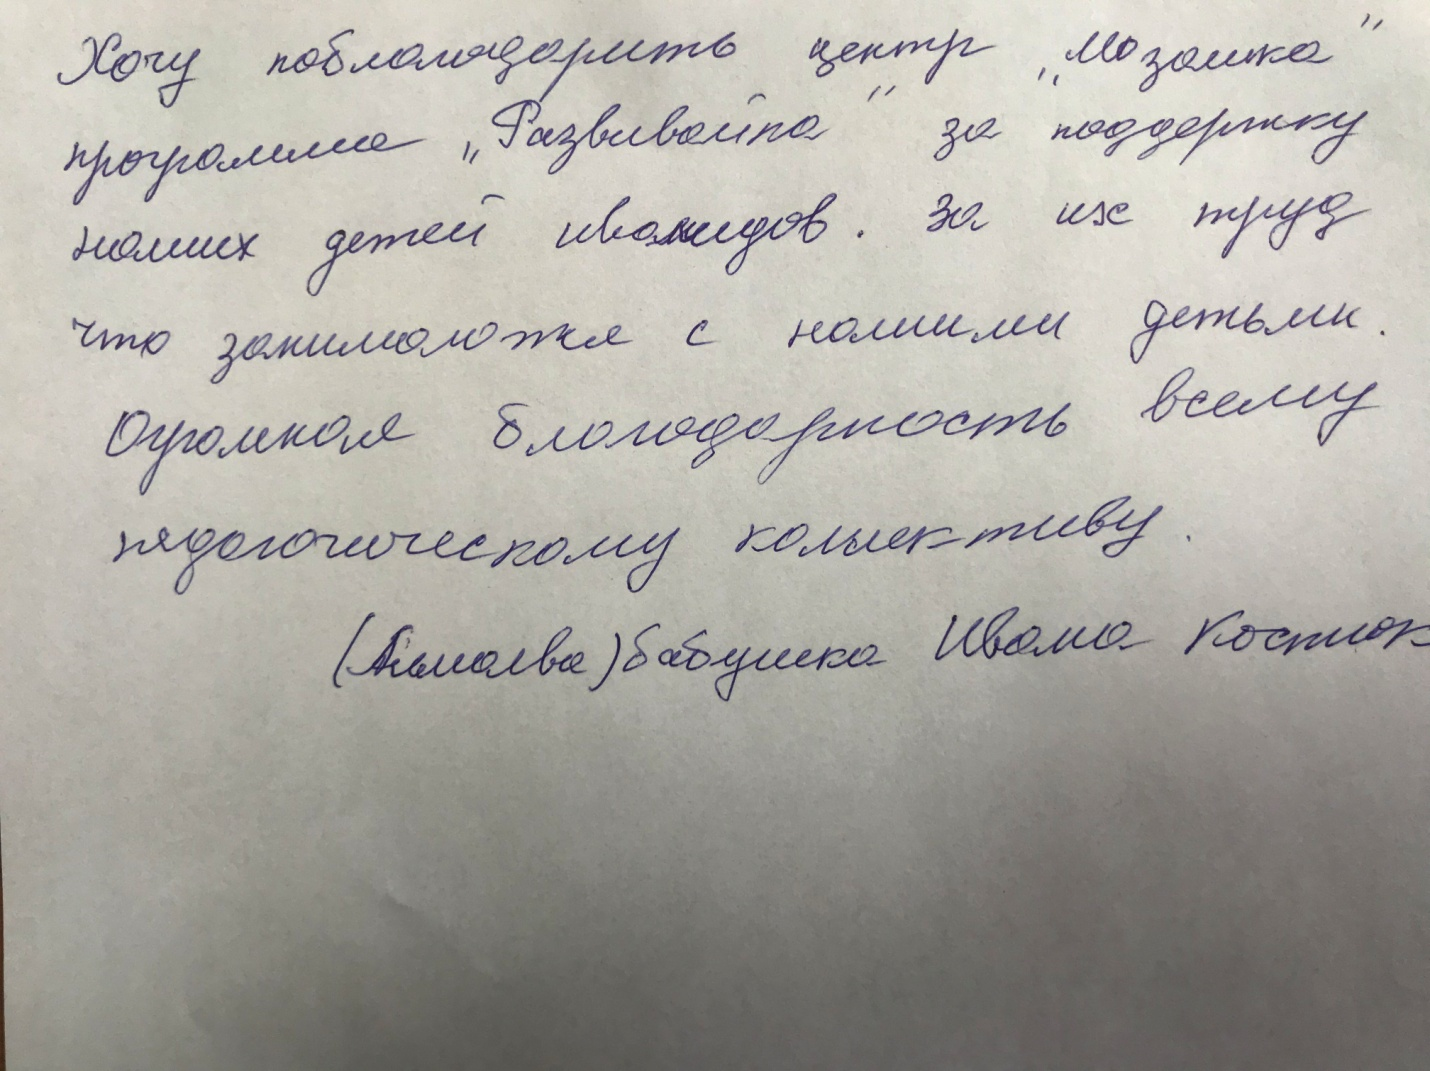 Хочу поблагодарить центр „Мозаика"
программа „Развивайка" за поддержку
наших детей ивалидов. За их труд
что занимаются с нашими детьми.
Огромная благодарность всему
педагогическому коллективу.
бабушка Ивана Костюк